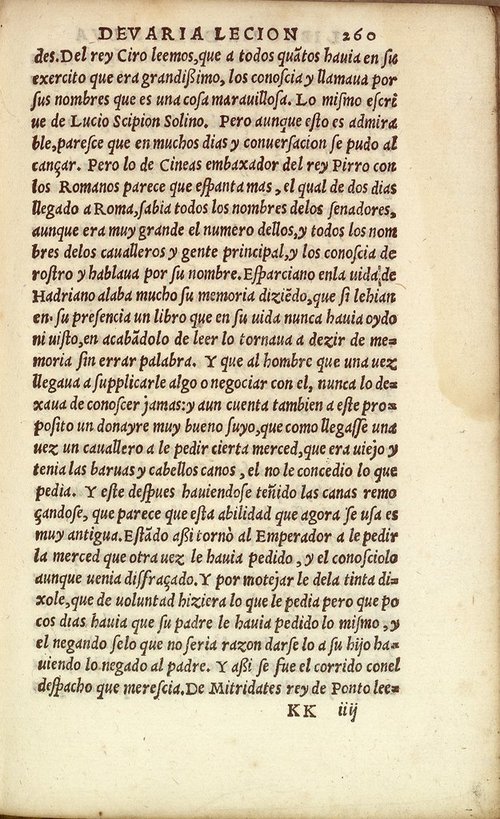 DE VARIA LECION 260
des. Del rey Ciro leemos, que a todos quãtos havia en ſu
exercito que era grandiſsimo, los conoſcia y llamava por
ſus nombres que es una coſa maravilloſa. Lo miſmo eſcri
ve de Lucio Scipion Solino. Pero aunque eſto es admira
ble, pareſce que en muchos dias y converſacion ſe pudo al
cançar. Pero lo de Cineas embaxador del rey Pirro con
los Romanos parece que eſpanta mas, el qual de dos dias
llegado a Roma, ſabia todos los nombres delos ſenadores,
aunque era muy grande el numero dellos, y todos los nom
bres delos cavalleros y gente principal, y los conoſcia de
roſtro y hablava por ſu nombre. Eſparciano enla vida de
Hadriano alaba mucho ſu memoria diziẽdo, que ſi lehian
en ſu preſencia un libro que en ſu vida nunca havia oydo
ni viſto, en acabãdolo de leer lo tornava a dezir de me=
moria ſin errar palabra. Y que al hombre que una vez
llegava a ſupplicarle algo o negociar con el, nunca lo de=
xava de conoſcer jamas: y aun cuenta tambien a eſte pro=
poſito un donayre muy bueno ſuyo, que como llegaſſe una
vez un cavallero a le pedir cierta merced, que era viejo y
tenia las barvas y cabellos canos, el no le concedio lo que
pedia. Y eſte deſpues haviendoſe teñido las canas remo
çandoſe, que parece que eſta abilidad que agora ſe uſa es
muy antigua. Eſtãdo aſsi tornò al Emperador a le pedir
la merced que otra vez le havia pedido, y el conoſciolo
aunque venia disfraçado. Y por motejar le dela tinta di=
xole, que de voluntad hiziera lo que le pedia pero que po
cos dias havia que ſu padre le havia pedido lo miſmo, y
el negando ſelo que no ſeria razon darſe lo a ſu hijo ha=
viendo lo negado al padre. Y aſsi ſe fue el corrido conel
deſpacho que mereſcia. De Mitridates rey de Ponto lee=
KK iiij